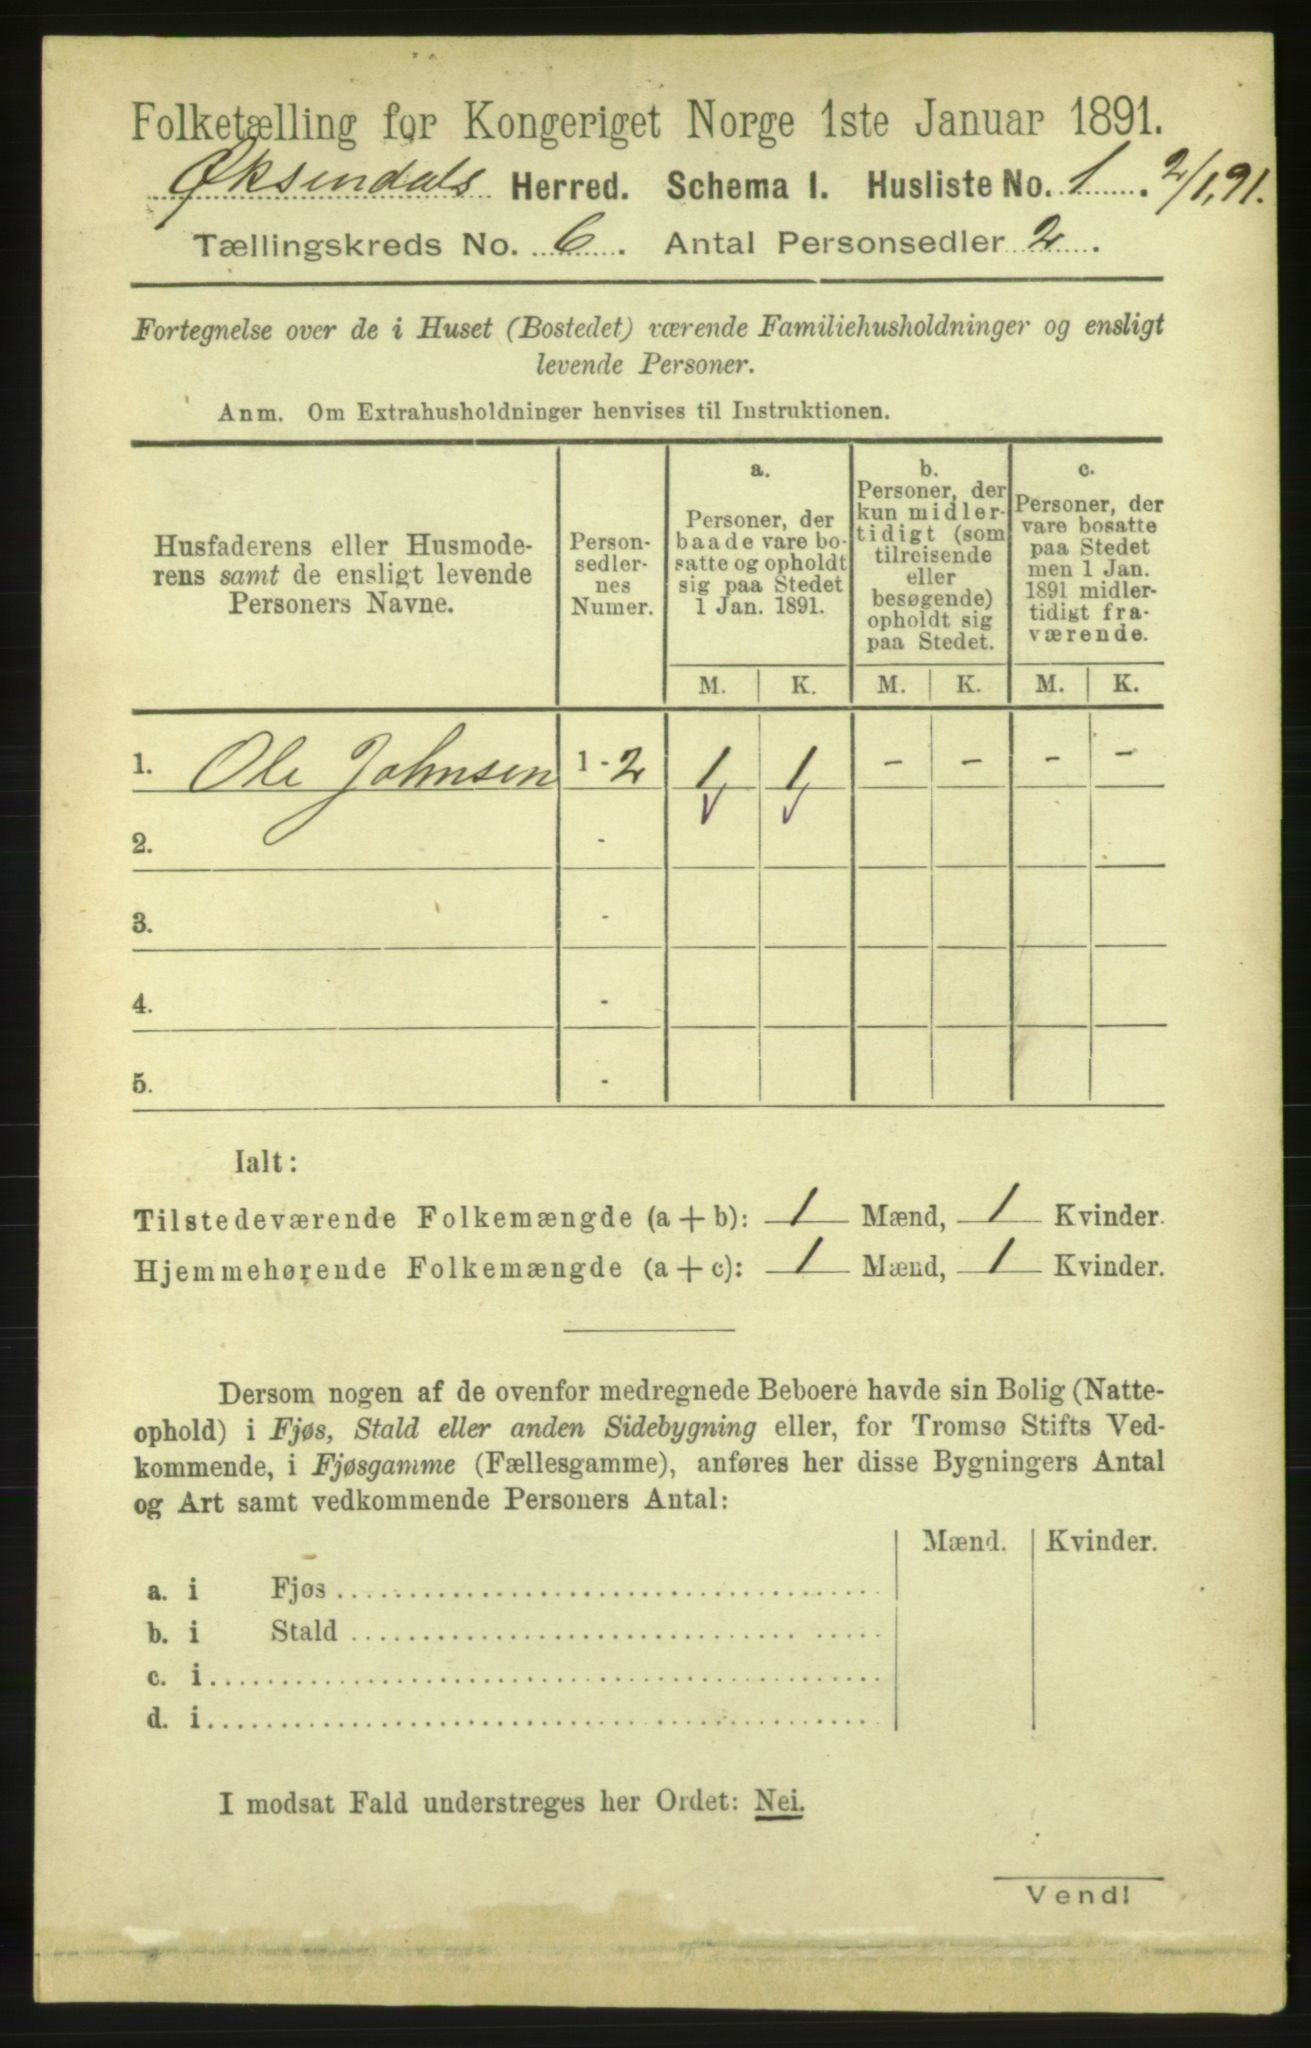 Folketælling for Kongeriget Norge 1ste Januar 1891.
Øksendals Herred. Schema I. Husliste No. 1. 2/1.91.
Tællingskreds No. 6. Antal Personsedler 2.
Fortegnelse over de i Huset (Bostedet) værende Familiehusholdninger og ensligt
levende Personer.
Anm. Om Extrahusholdninger henvises til Instruktionen.
Husfaderens eller Husmode-
rens samt de ensligt levende
Personers Navne.
Person-
sedler-
nes
Numer.
a.
Personer, der
baade vare bo-
satte og opholdt
sig paa Stedet
1 Jan. 1891.
b.
Personer, der
kun midler-
tidigt (som
tilreisende
eller
besøgende)
opholdt sig
paa Stedet.
c.
Personer, der
vare bosatte
paa Stedet
men 1 Jan.
1891 midler-
tidigt fra-
værende.
M. K. M. K. M. K.
1. Ole Johnsen 1 - 2 1 1 - - - -
2. -
3. -
4. -
5. -
Ialt:
Tilstedeværende Folkemængde (a + b): 1 Mænd, 1 Kvinder.
Hjemmehørende Folkemængde (a + c): 1 Mænd, 1 Kvinder.
Dersom nogen af de ovenfor medregnede Beboere havde sin Bolig (Natte-
ophold) i Fjøs, Stald eller anden Sidebygning eller, for Tromsø Stifts Ved-
kommende, i Fjøsgamme (Fællesgamme), anføres her disse Bygningers Antal
og Art samt vedkommende Personers Antal:
Mænd. Kvinder.
a. i Fjøs
b. i Stald
c. i
d. i
I modsat Fald understreges her Ordet: Nei.
Vend!